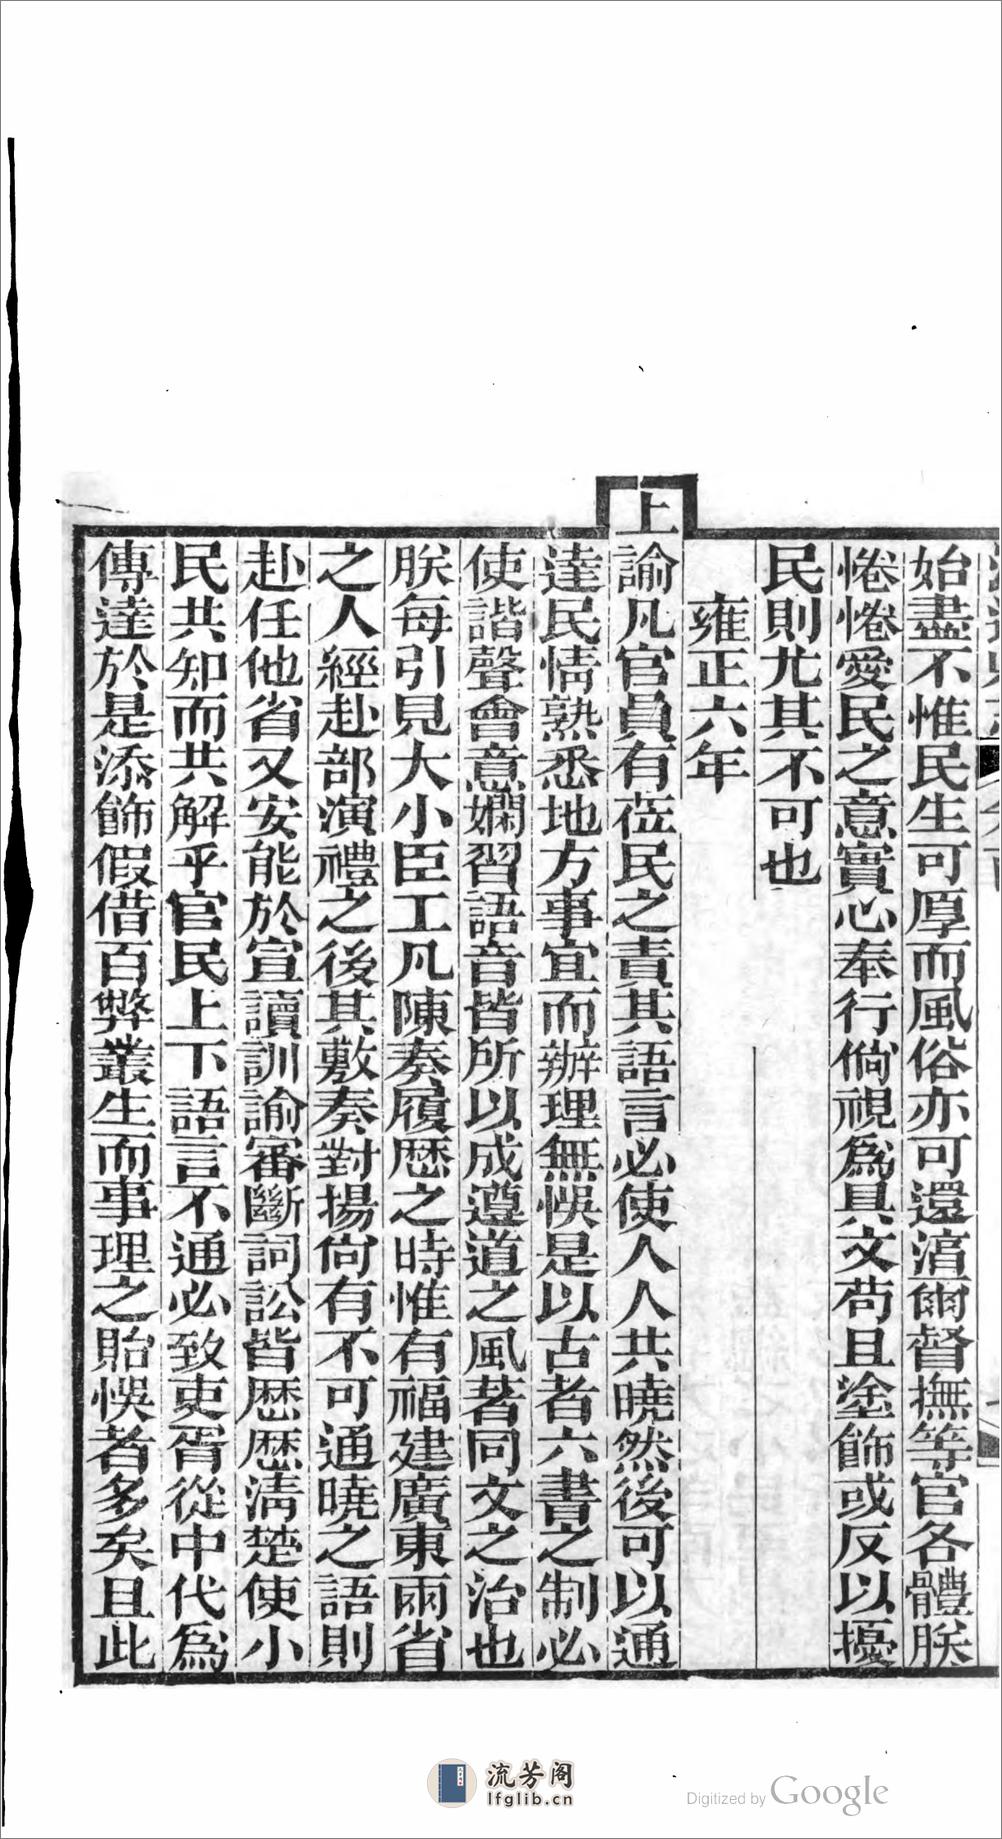 始盡不惟民生可厚而風俗亦可還淳爾督撫等官各體朕
惓惓愛民之意實心奉行倘視爲具文苟且塗飾或反以擾
民則尤其不可也
雍正六年
上諭凡官員有蒞民之責其語言必使人人共曉然後可以通
達民情熟悉地方事宜而辦理無悞是以古者六書之制必
使諧聲會意嫻習語音皆所以成遵道之風著同文之治也
朕每引見大小臣工凡陳奏履歷之時惟有福建廣東兩省
之人經赴部演禮之後其敷奏對揚尙有不可通曉之語則
赴任他省又安能於宣讀訓諭審斷詞訟皆歷歷淸楚使小
民共知而共解乎官民上下語言不通必致吏胥從中代爲
傳達於是添飾假借百弊叢生而事理之貽悞者多矣且此
流芳阁
lfglib.cn
Digitized by Google